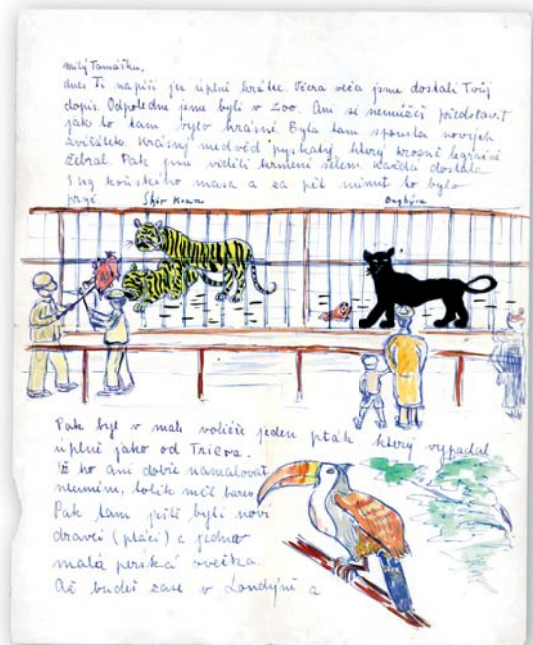 milý Tomášku,
dnes Ti napíši jen úplně krátce. Včera večer jsme dostali Tvůj
dopis. Odpoledne jsme byli v Zoo. Ani si nemůžeš představit
jak to tam bylo krásné. Byla tam spousta nových
zvířátek. Krásný medvěd pyskatý který hrozně legračně
žebral. Pak jsme viděli krmení šelem. Každá dostala
3 kg koňského masa a za pět minut to bylo
pryč.
Shér Khan Baghýra
Pak byl v malé voliéře jeden pták který vypadal
úplně jako od Triera.
Že ho ani dobře namalovat
neumím, tolik měl barev
Pak tam ještě byli noví
dravci (ptáci) a jedna
malá perská ovečka.
Až budeš zase v Londýně a